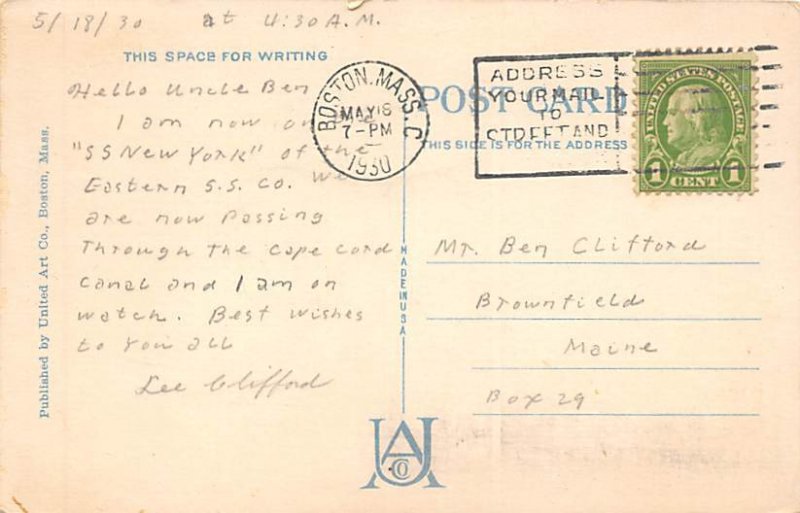 5/18/30 at 4:30 A.M.
THIS SPACE FOR WRITING
Hello Uncle Ben
I am now on the
"SS New York" of the
Eastern S.S. Co. We
are now Passing
Through the Cape Cord
Canal and I am on
watch. Best wishes
to you all
Lee Clifford
Published by United Art Co., Boston, Mass.
MADE IN USA
BOSTON, MASS. C
MAY 18
7-PM
1930
POST CARD
THIS SIDE IS FOR THE ADDRESS
ADDRESS
YOUR MAIL
TO
STREET AND
UNITED STATES POSTAGE
1 CENT 1
Mr. Ben Clifford
Brownfield
Maine
Box 29
UA
CO